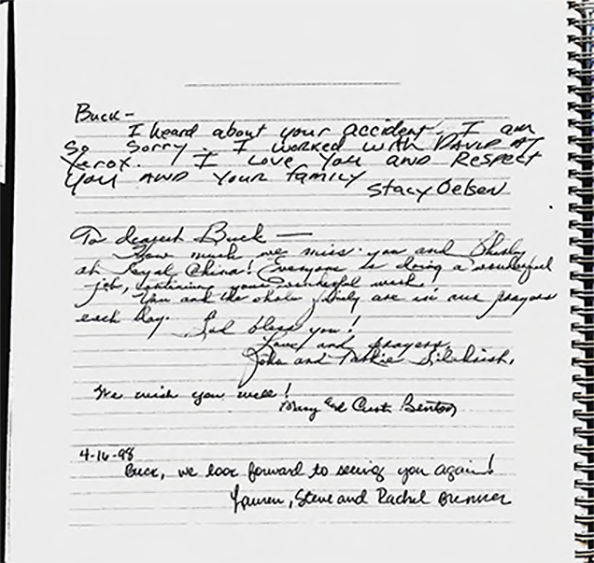 Buck-
I heard about your accident. I am
so sorry. I worked with David at
Xerox. I love you and respect
you and your family
Stacy Oelsen
To dearest Buck —
How much we miss you and Shirley
at Royal China! Everyone is doing a wonderful
job, continuing your wonderful work!
You and the whole family are in our prayers
each day. God bless you!
Love and prayers,
John and
We wish you well!
Mary and Curt Benton
4-16-98
Buck, we look forward to seeing you again!
Lauren, Steve and Rachel Brenner